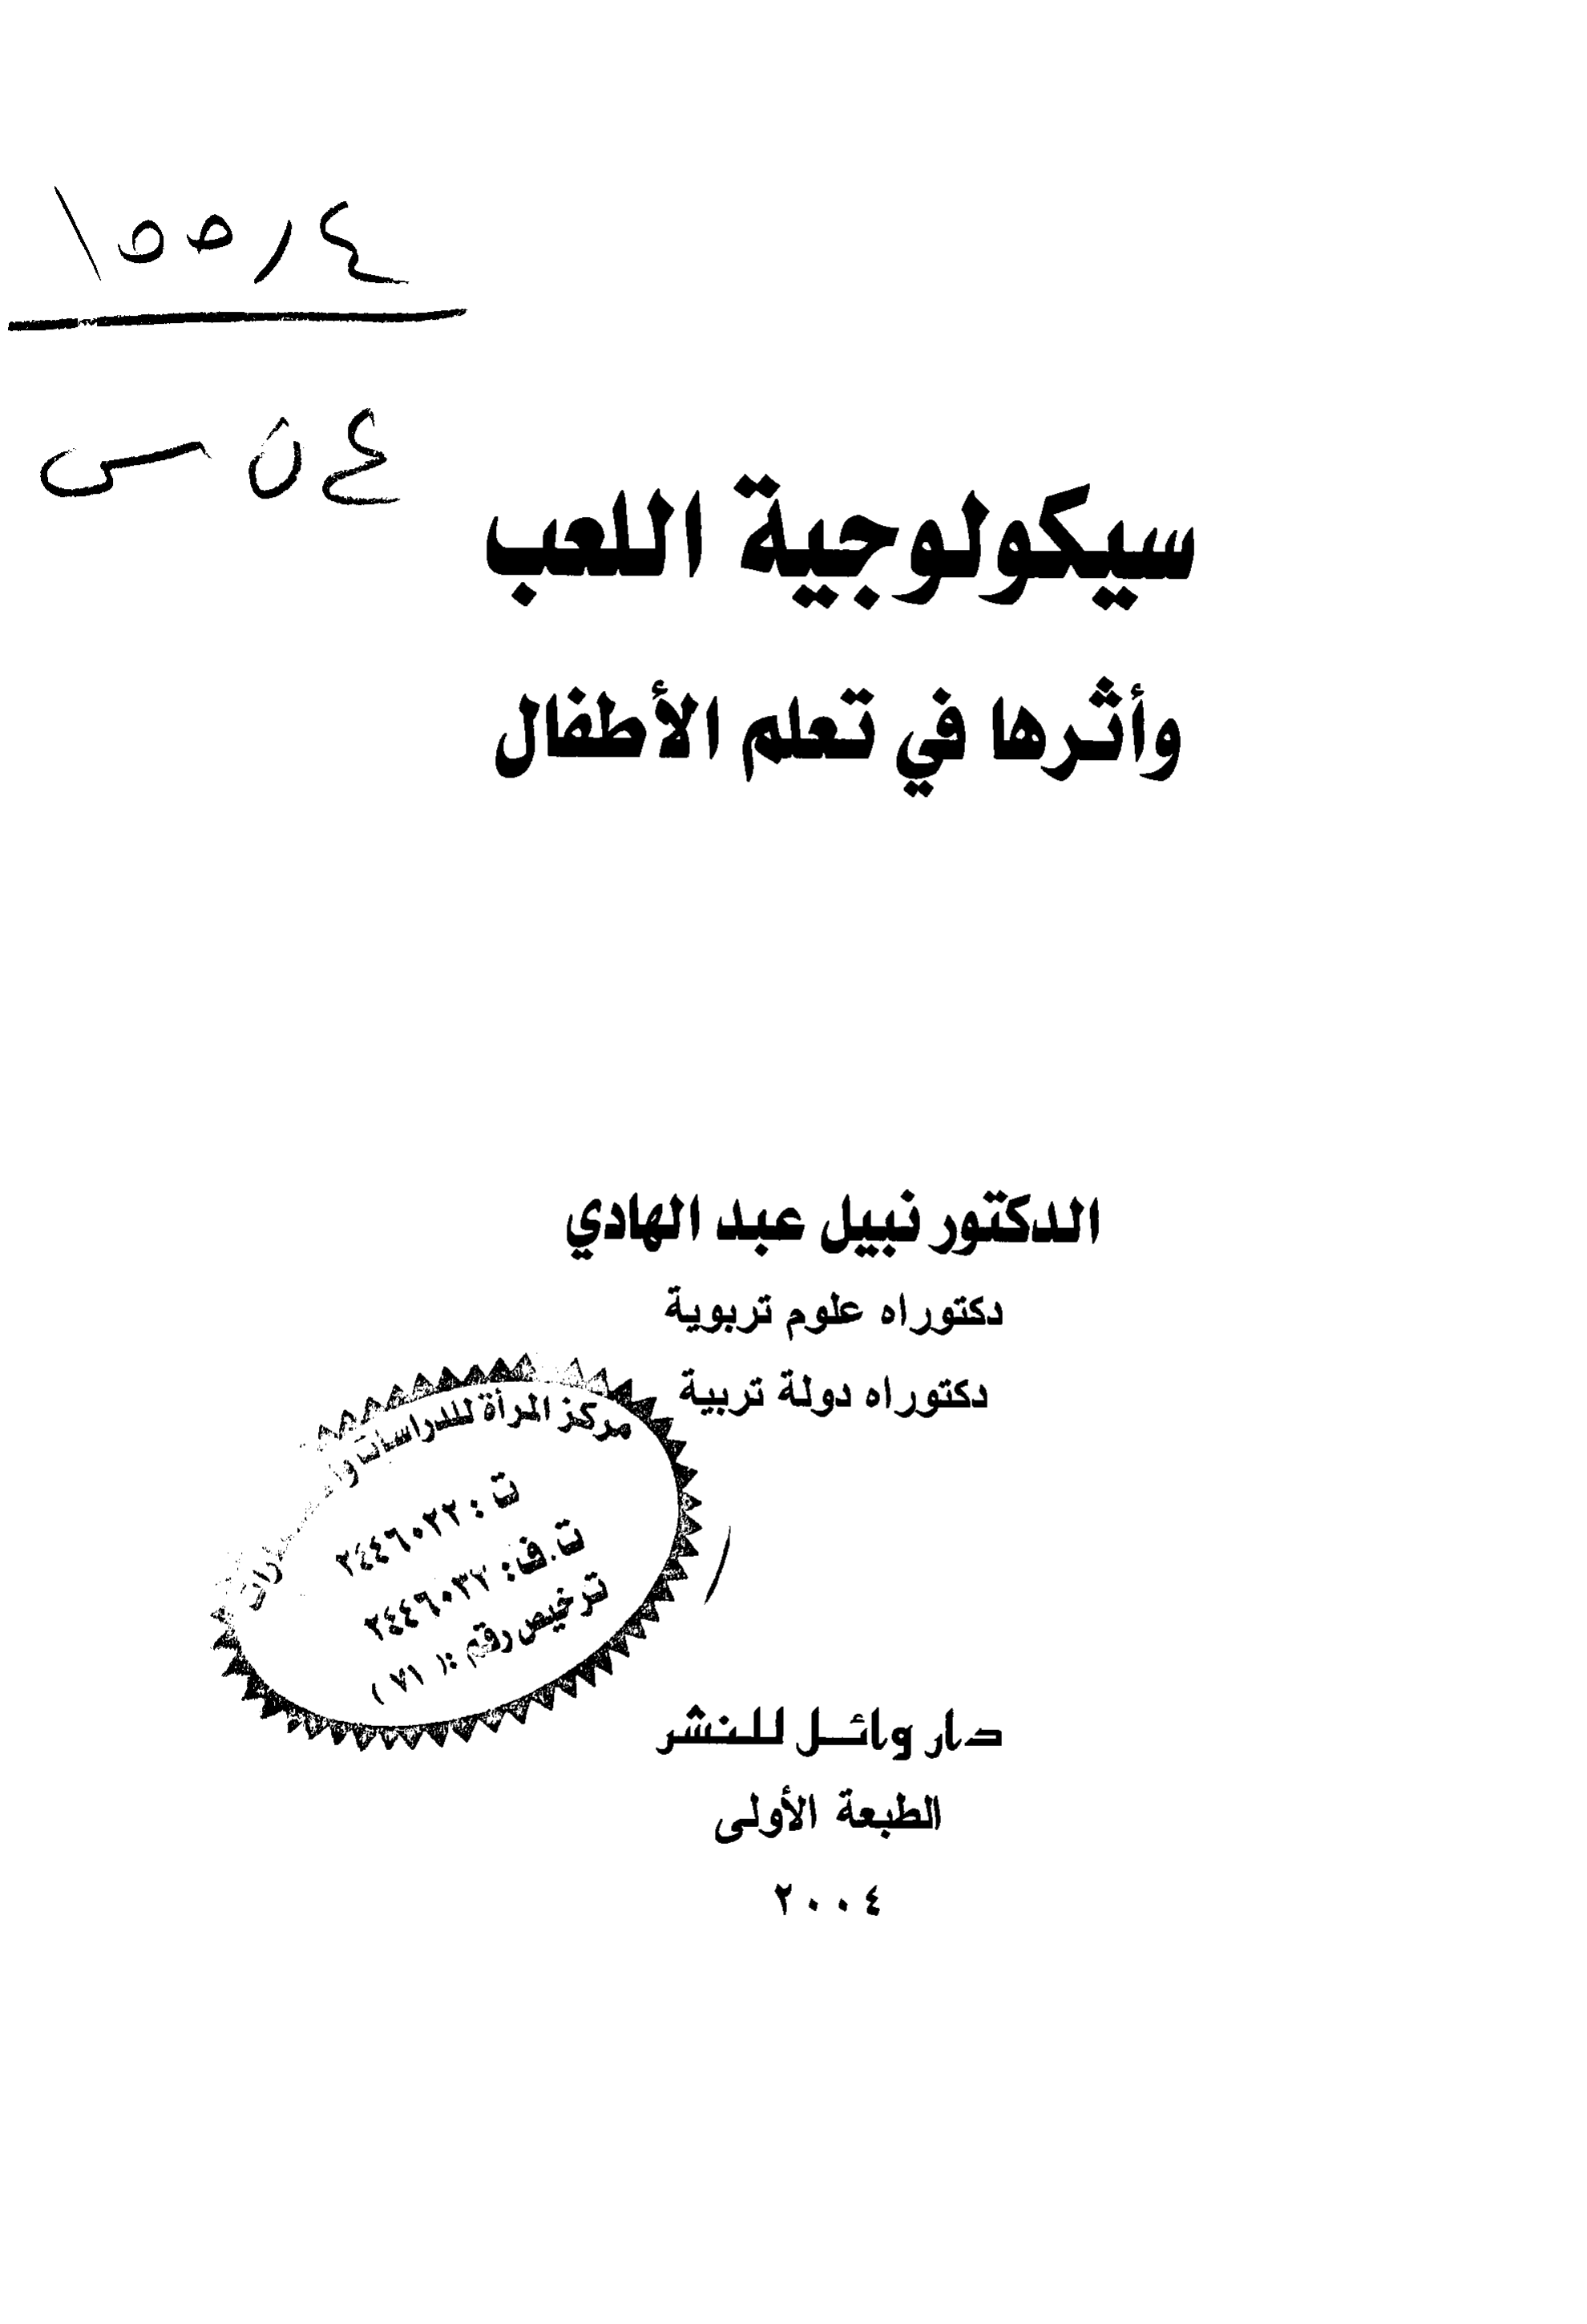 ١٥٥٫٤
ع ن س
سيكولوجية اللعب
وأثرها في تعلم الأطفال
الدكتور نبيل عبد الهادي
دكتوراه علوم تربوية
دكتوراه دولة تربية
مركز المرأة للدراسات
ت : ٢٤٤٦٠٢٢
ت.ف: ٢٤٤٦٠٣٢
ترخيص رقم : (٧١)
دار وائل للنشر
الطبعة الأولى
٢٠٠٤